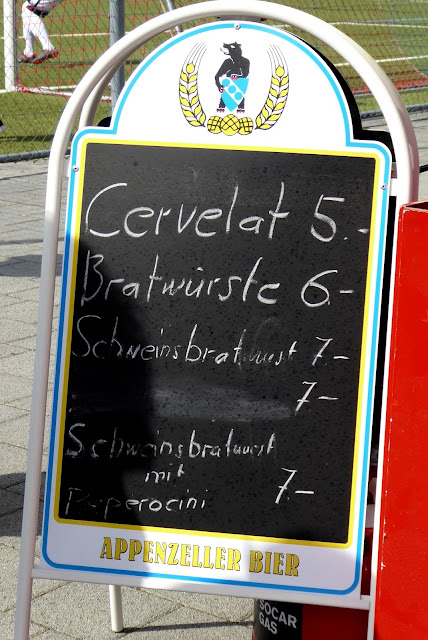 Cervelat 5.-
Bratwürste 6.-
Schweinsbratwust 7.-
7.-
Schweinsbratwurst
mit
Peperocini 7.-
APPENZELLER BIER
SOCAR
GAS